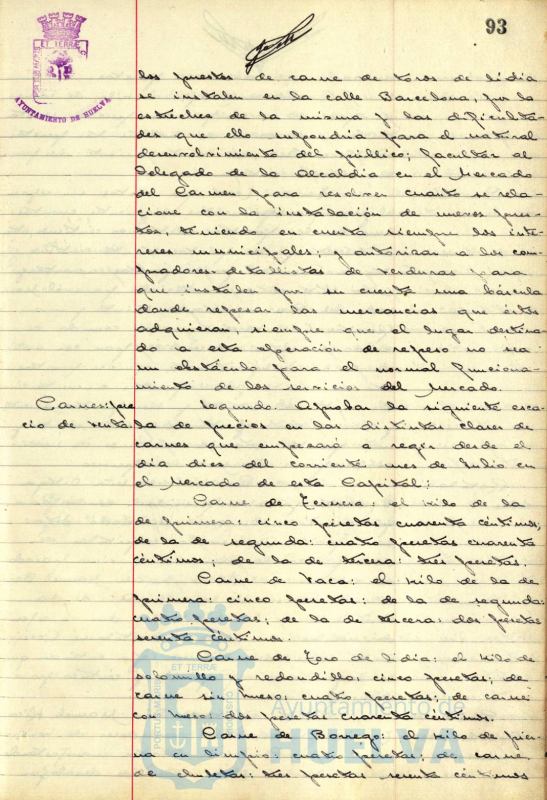 93
ET TERRÆ
AYUNTAMIENTO DE HUELVA
los puestos de carne de toros de lidia
se instalen en la calle Barcelona, por la
estrechez de la misma y las dificulta-
des que ello supondría para el natural
desenvolvimiento del público; facultar al
Delegado de la Alcaldía en el Mercado
del Carmen para resolver cuanto se rela-
cione con la instalación de nuevos pues-
tos, teniendo en cuenta siempre los inte-
reses municipales; y autorizar a los com-
pradores-detallistas de verduras para
que instalen por su cuenta una báscula
donde repesar las mercancías que éstos
adquieran, siempre que el lugar destina-
do a esta operación de repeso no sea
un obstáculo para el normal funciona-
miento de los servicios del Mercado.
Carnes: pre-
cio de venta
Segundo. Aprobar la siguiente esca-
la de precios en las distintas clases de
carnes que empezará a regir desde el
día diez del corriente mes de Julio en
el Mercado de esta Capital:
Carne de Ternera: el kilo de la
de primera: cinco pesetas cuarenta céntimos;
de la de segunda: cuatro pesetas cuarenta
céntimos; de la de tercera: tres pesetas.
Carne de Vaca: el kilo de la de
primera: cinco pesetas; de la de segunda:
cuatro pesetas; de la de tercera: dos pesetas
sesenta céntimos.
Carne de Toro de lidia: el kilo de
solomillo y redondillo, cinco pesetas; de
carne sin hueso; cuatro pesetas; de carne
con hueso: dos pesetas cuarenta céntimos.
Carne de Borrego: el kilo de pier-
na en limpio: cuatro pesetas; de carne
de chuletas: tres pesetas sesenta céntimos
ET TERRÆ
Ayuntamiento de
HUELVA